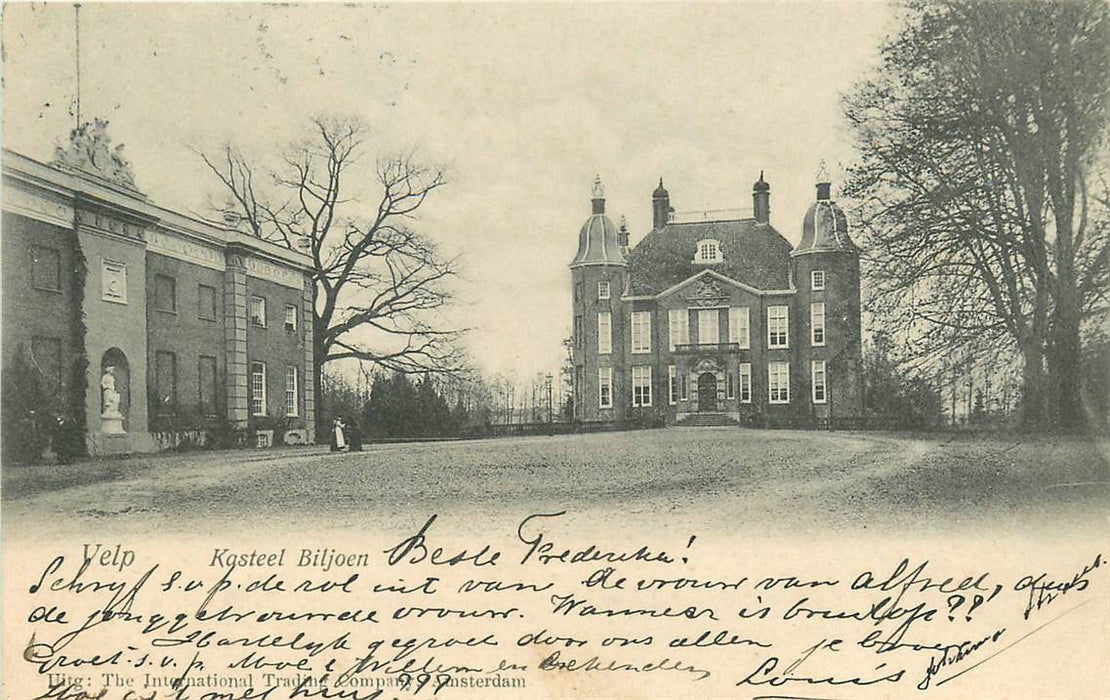 Velp Kasteel Biljoen Beste Frederika!
Schryf s.v.p. de rol uit van de vrouw van Alfred, dus
de jonggetrouwde vrouw. Wanneer is bruiloft??
Hartelyk gegroet door ons allen je
Groet s.v.p. Moe, Willem en
Louis
Uitg: The International Trading Company Amsterdam
met huis???